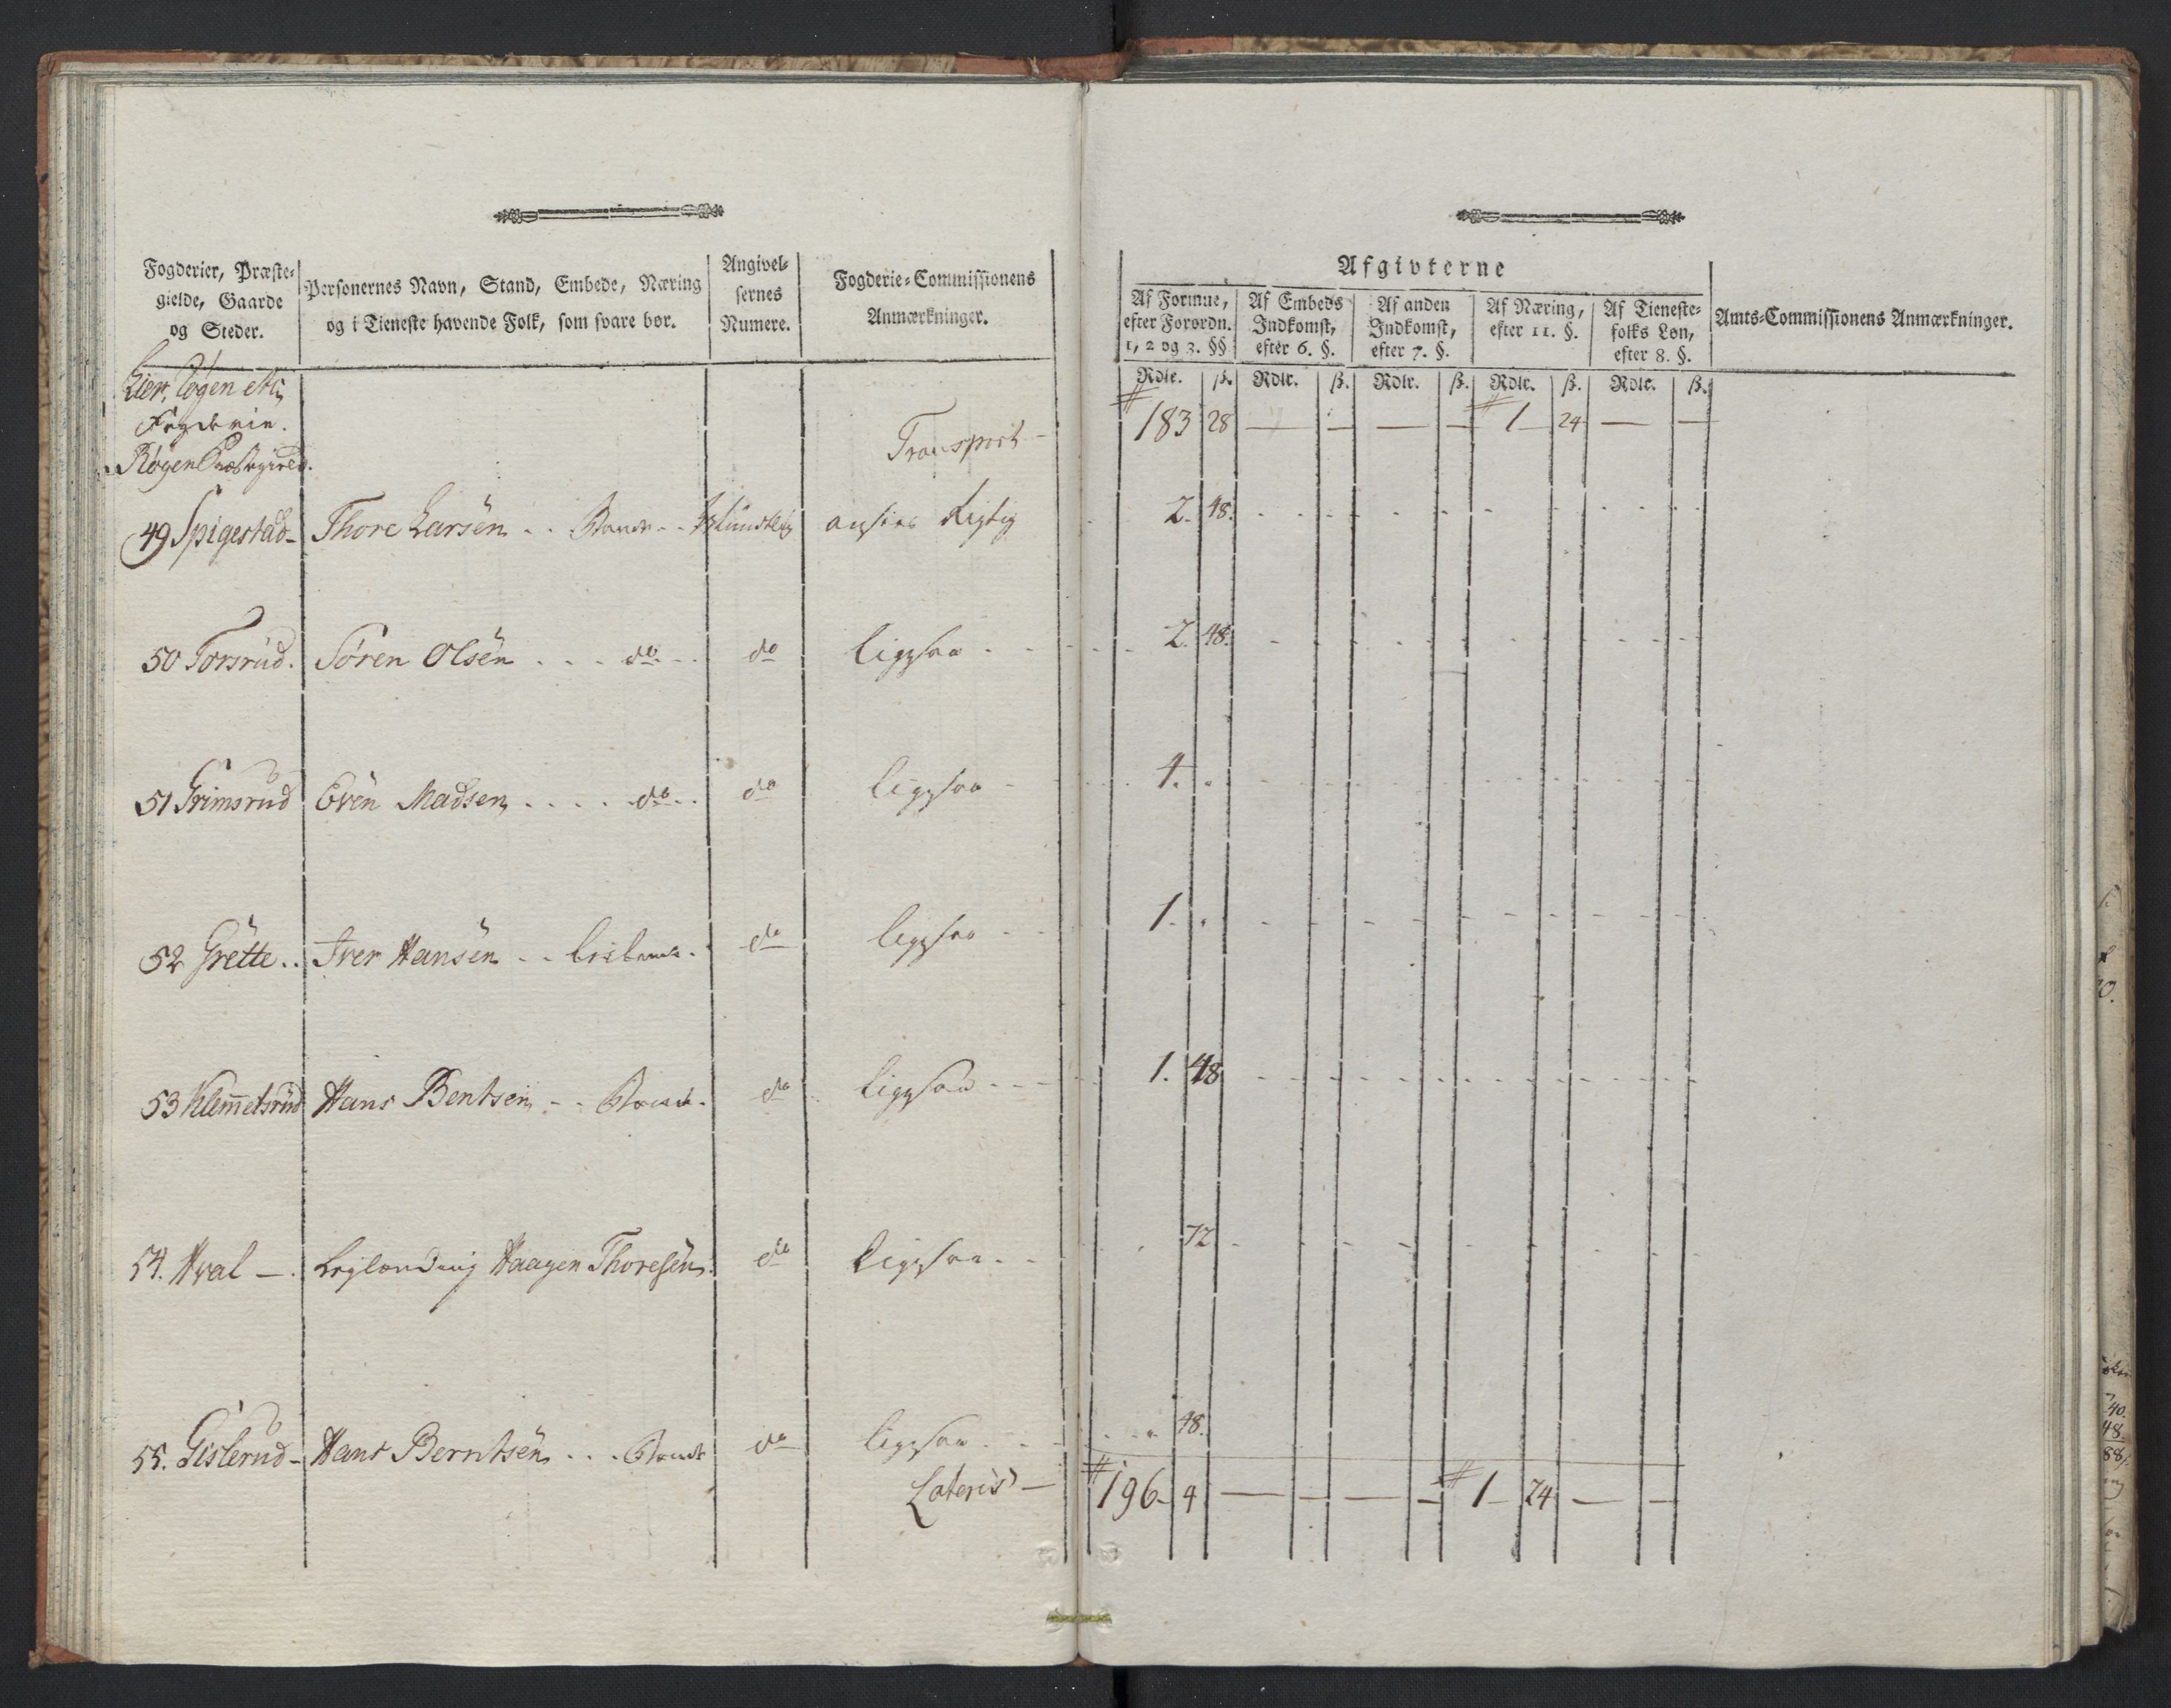 Fogderier, Præste-
gielde, Gaarde
og Steder.
Personernes Navn, Stand, Embede, Næring
og i Tieneste havende Folk, som svare bør.
Angivel-
sernes
Numere.
Fogderie-Commissionens
Anmærkninger.
Afgivterne
Af Formue,
efter Forordn.
1, 2 og 3. §§
Af Embeds
Indkomst,
efter 6. §.
Af anden
Indkomst,
efter 7. §.
Af Næring,
efter 11. §.
Af Tieneste-
folks Løn,
efter 8. §.
Amts-Commissionens Anmærkninger.
Rdlr. ß. Rdlr. ß. Rdlr. ß. Rdlr. ß. Rdlr. ß.
Lier, Røgen etc
Fogderie.
Røgen Præstegield.
Transport - 183 28 — — — — 1 24 — —
49 Spigestad - Thore Larsen . . Bonde - - Mundtlig ansees Rigtig 2. 48.
50 Torsrud. Sören Olsen . . . do. - . do ligesaa . 2. 48.
51 Grimsrud Even Madsen . . . . do. . do ligesaa - 4. .
52 Grötte . . Iver Hansen - . do ligesaa - 1. .
53 Klem̅etsrud Hans Bentsen - . Bonde. do ligesaa - - - 1. 48
54. Hval — . Leylending Haagen Thoresen. do ligesaa . - 72
55. Gislerud - Hans Berntsen . . . Bonde do ligesaa . 48.
Lateris — 196 - 4 — — — — 1 - 24 — —